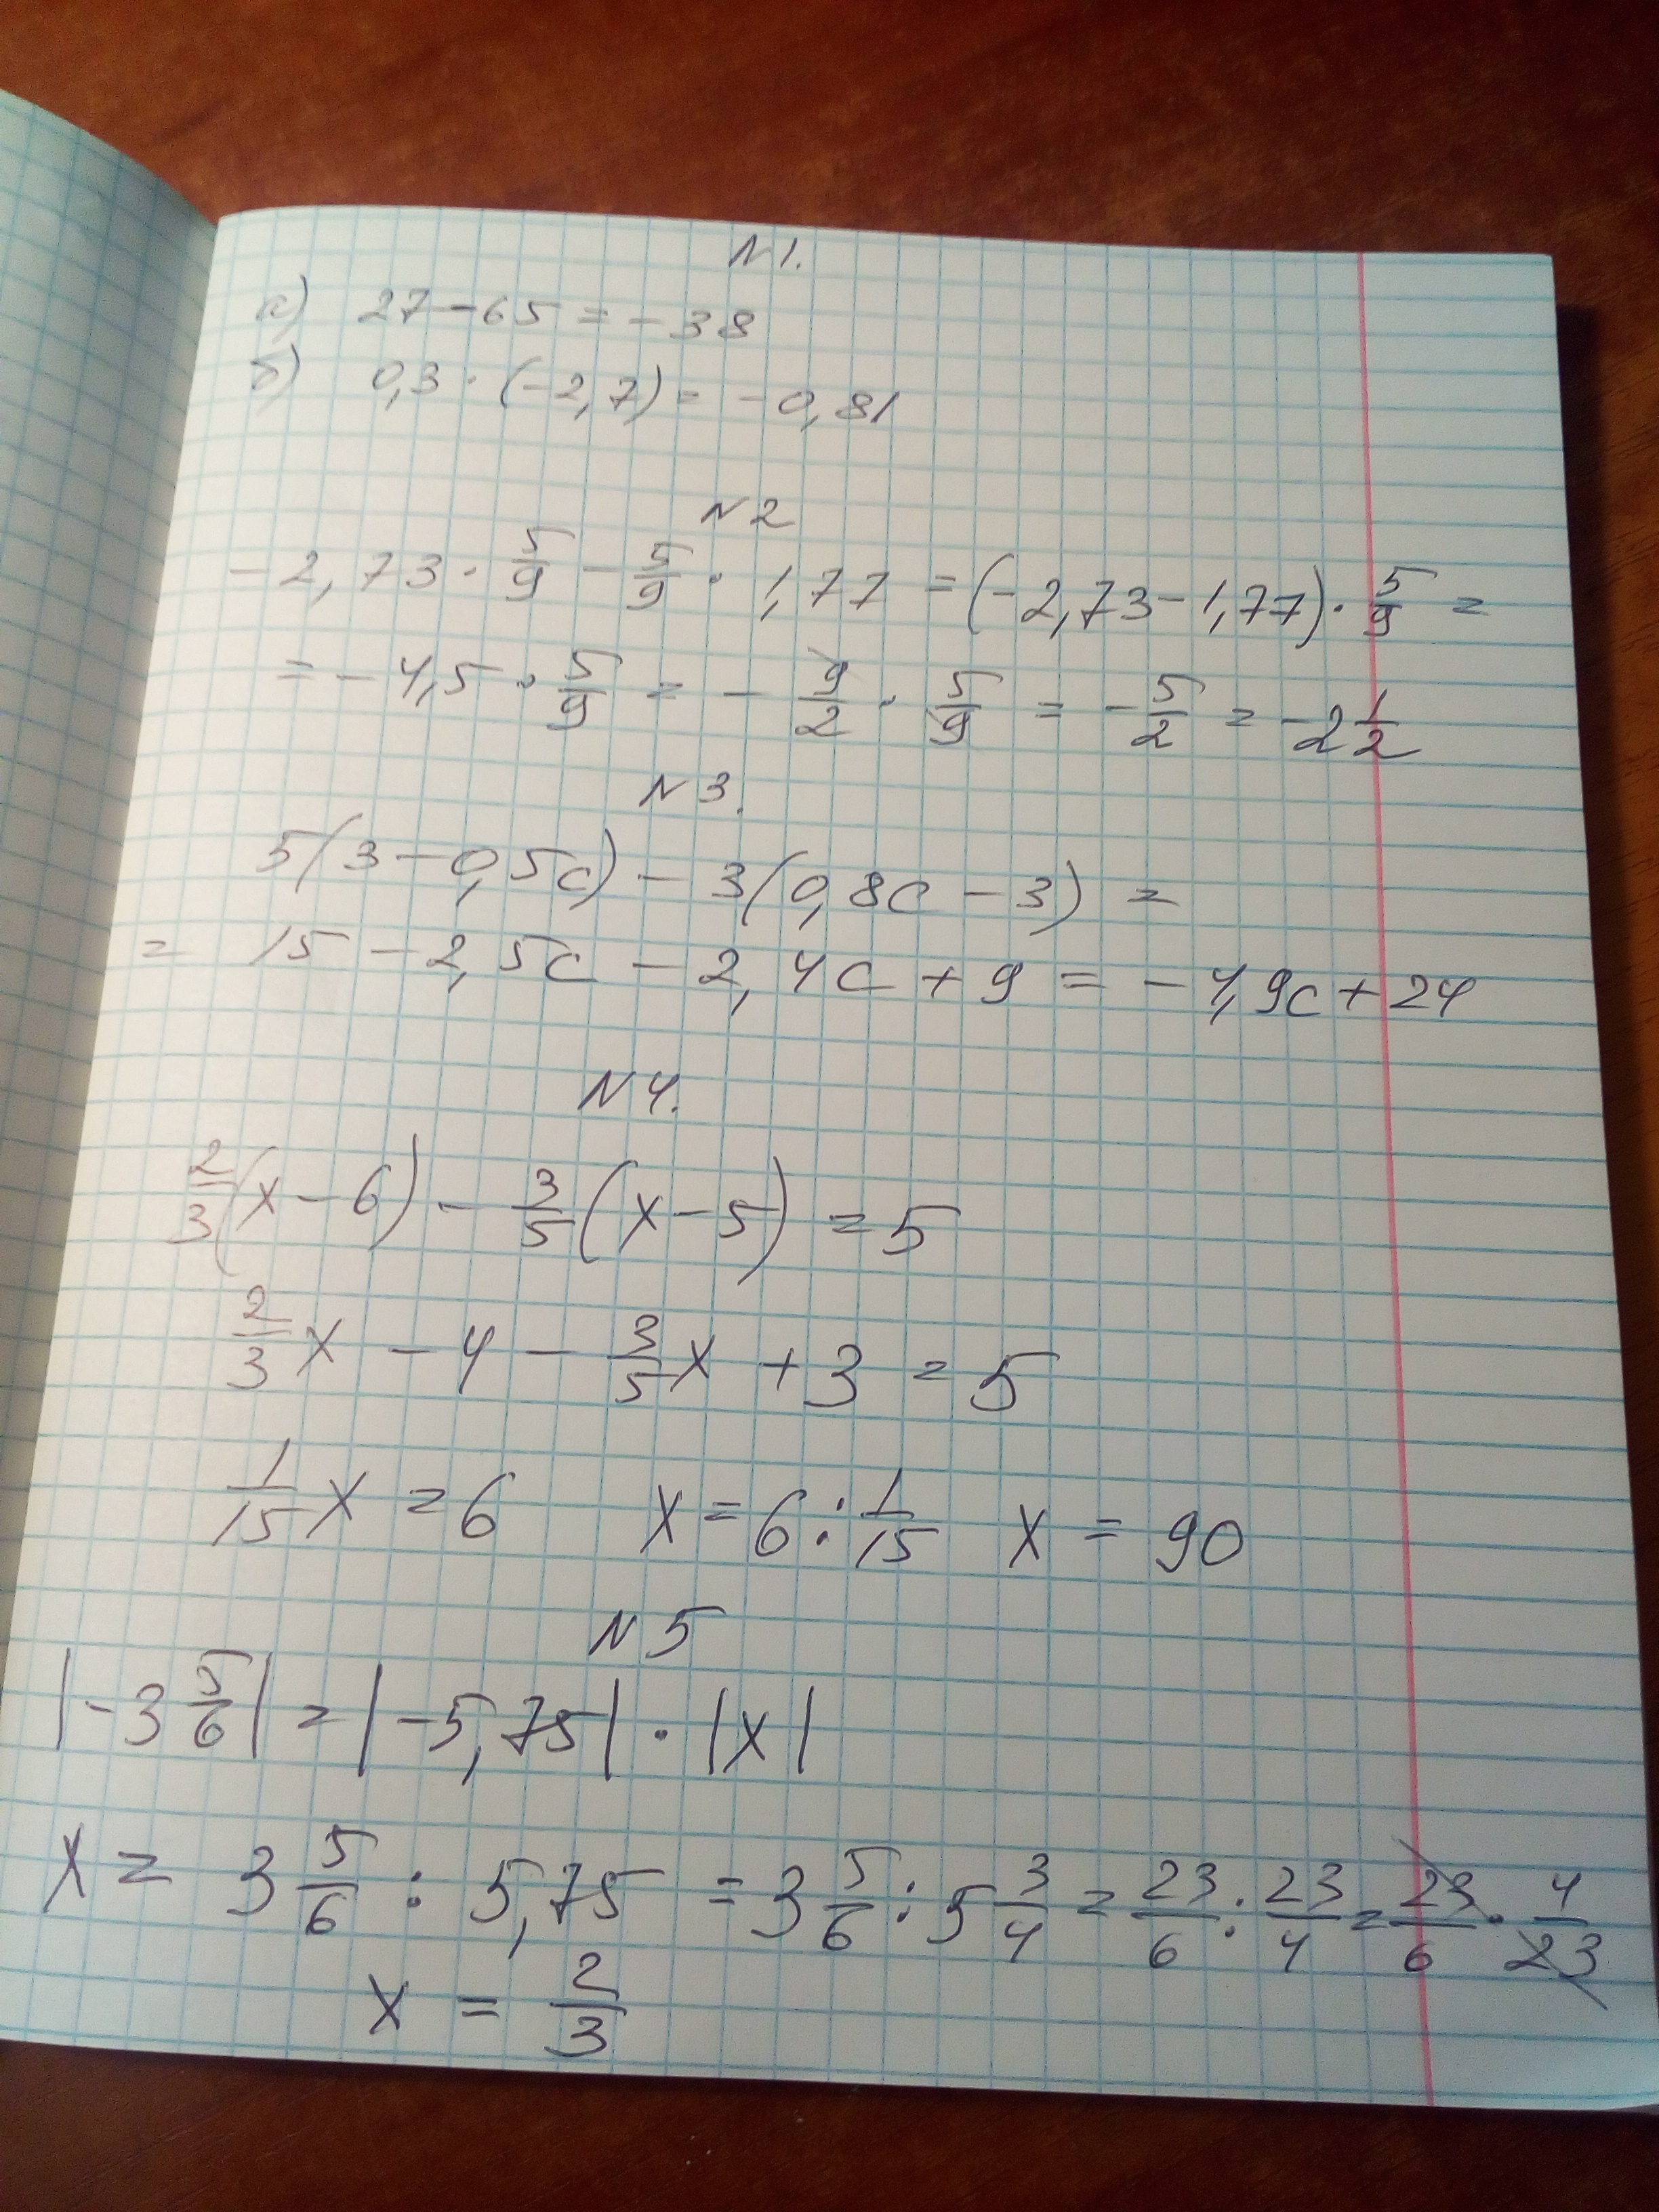 N1.
а) 27-65=-38
б) 0,3·(-2,7)=-0,81
N2
-2,73·5/9-5/9·1,77=(-2,73-1,77)·5/9=
=-4,5·5/9=-9/2·5/9=-5/2=-2 1/2
N3.
5(3-0,5c)-3(0,8c-3)=
=15-2,5c-2,4c+9=-4,9c+24
N4.
2/3(x-6)-3/5(x-5)=5
2/3x-4-3/5x+3=5
1/15x=6 x=6:1/15 x=90
N5
|-3 5/6|=|-5,75|·|x|
x=3 5/6:5,75=3 5/6:5 3/4=23/6:23/4=23/6·4/23
x=2/3